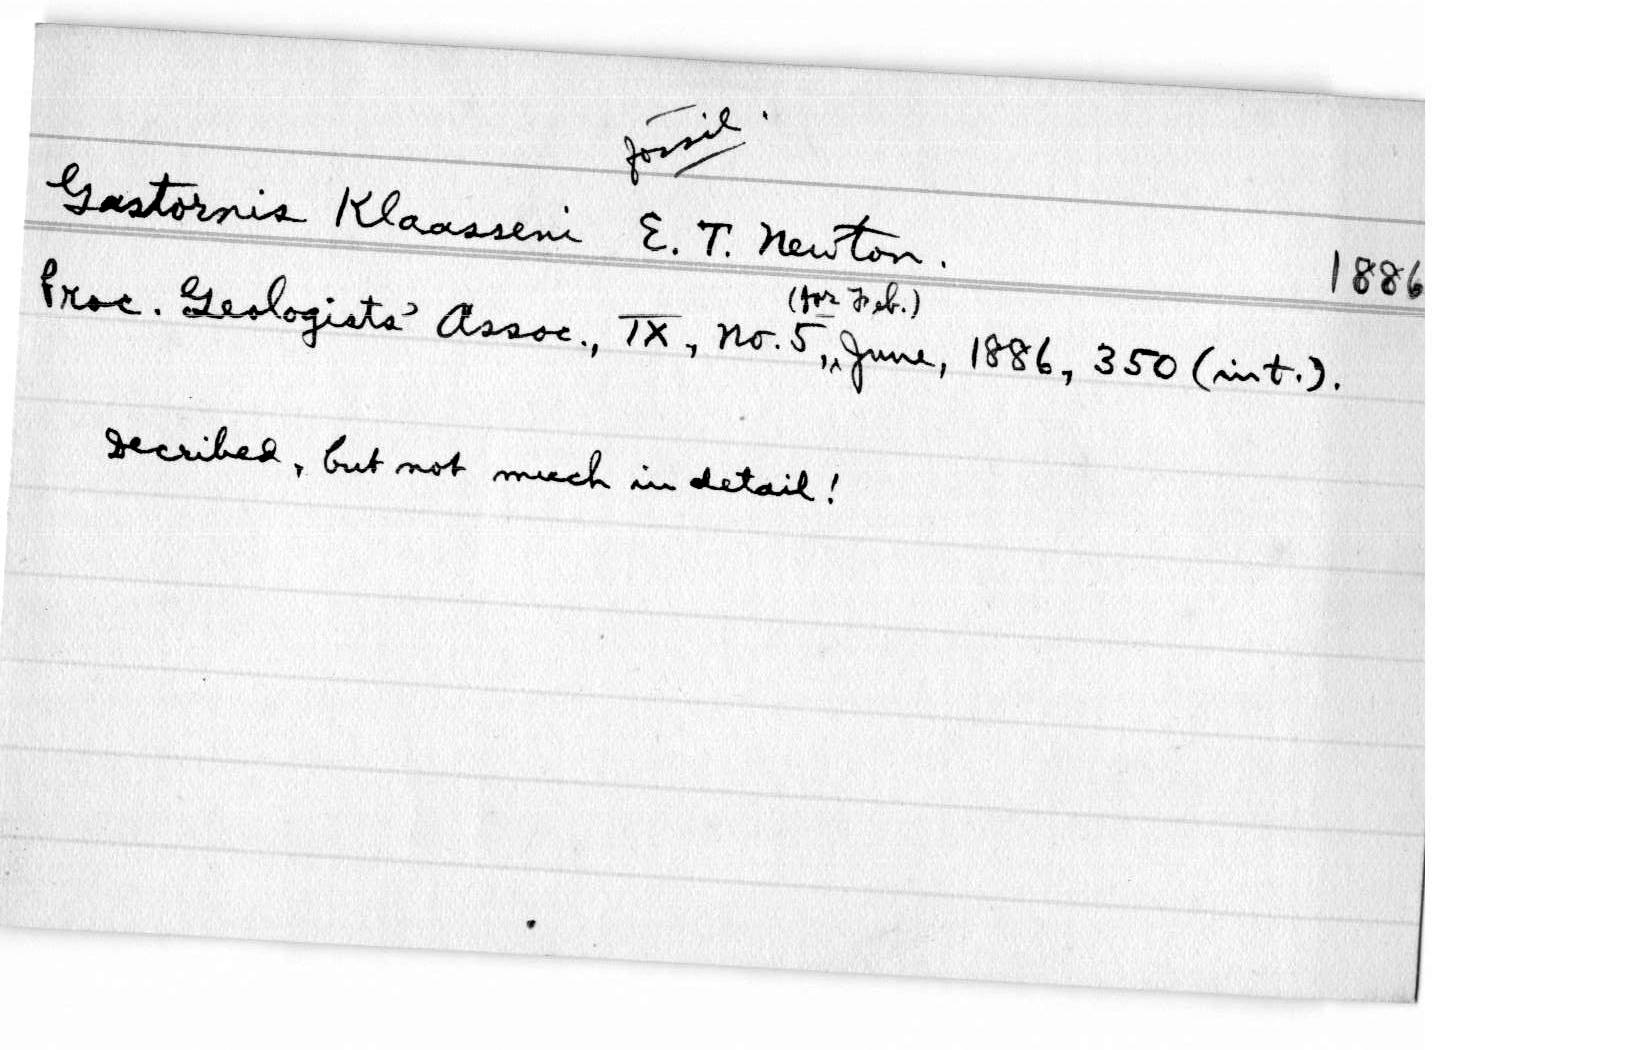 fossil.
Gastornis Klaasseni E. T. Newton. 1886
(for Feb.)
Proc. Geologists' Assoc., IX, no. 5, June, 1886, 350 (int.).
Decribed, but not much in detail!